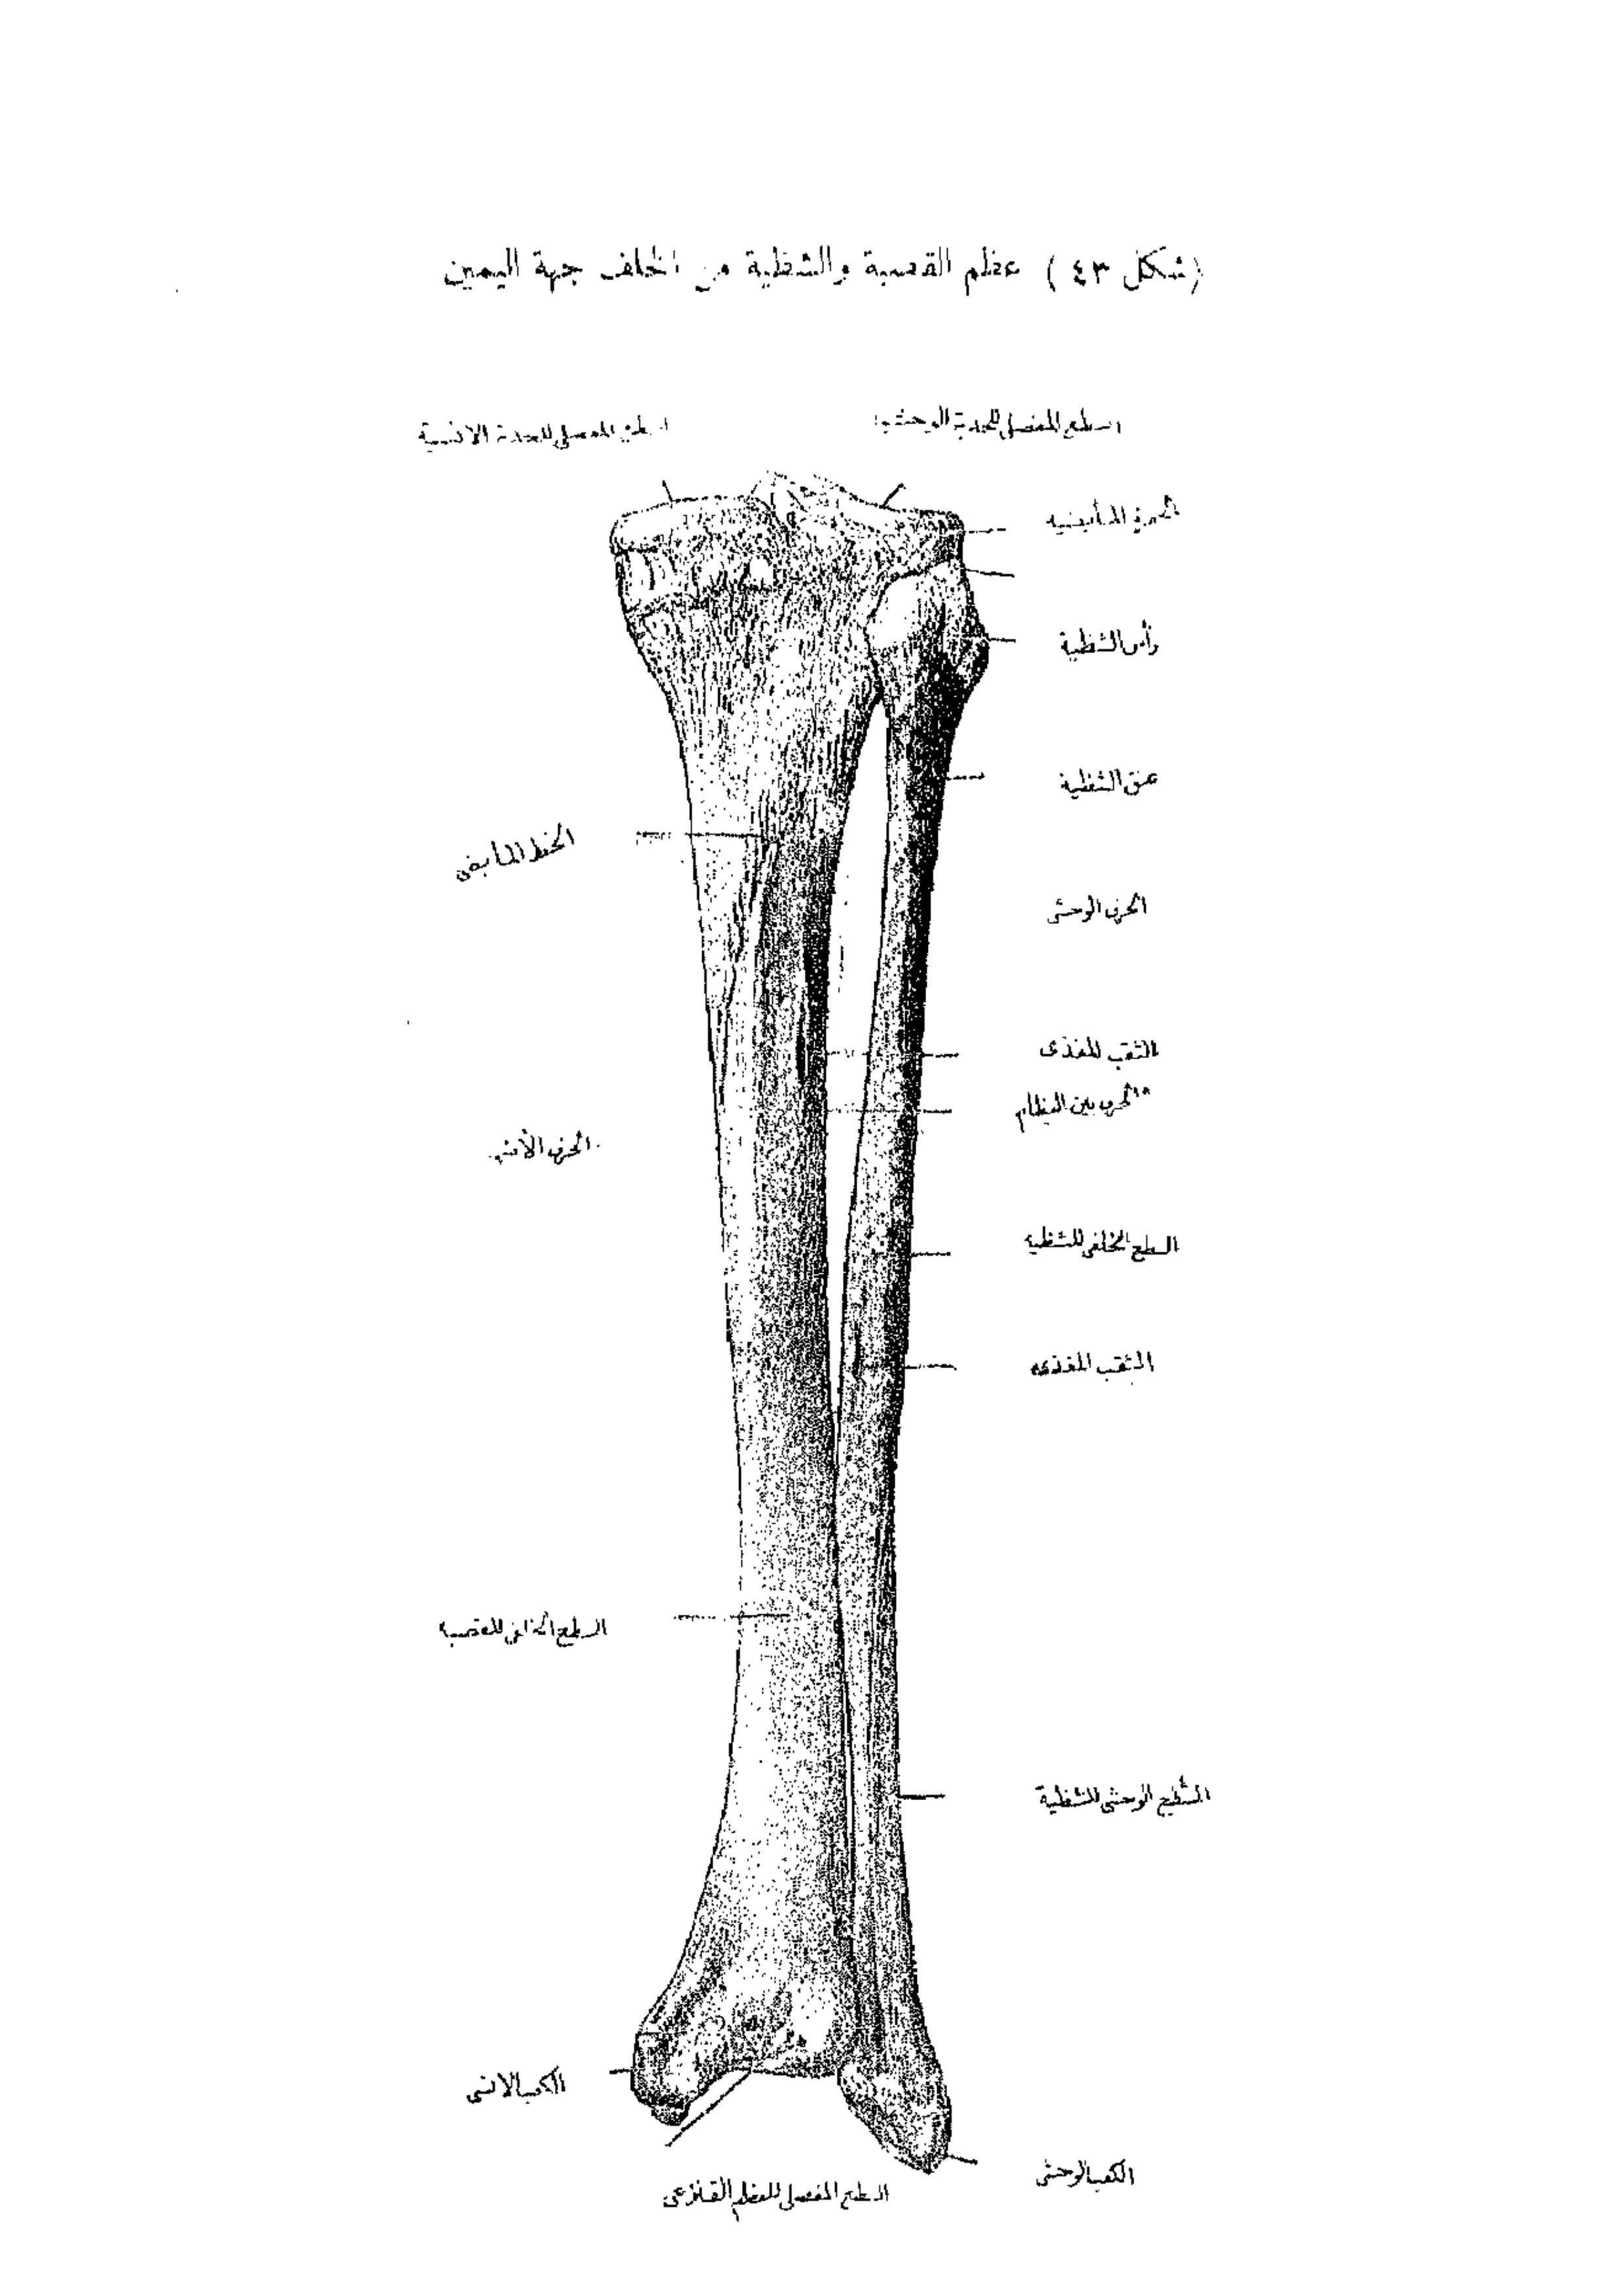 (شكل ٤٣) عظم القصبة والشظية من الخلف جهة اليمين
السطح المفصلى للحدبة الوحشية
السطح المفصلى للحدبة الانسية
رأس الشظية
عنق الشظية
الخط المأبضى
الحرف الوحشى
الثقب المغذى
الحرف بين العظام
الحرف الأنسى
السطح الخلفى للشظية
الثقب المغذى
السطح الخلفى للقصبة
السطح الوحشى للشظية
الكعب الانسى
الكعب الوحشى
السطح المفصلى للعظم القنزعى